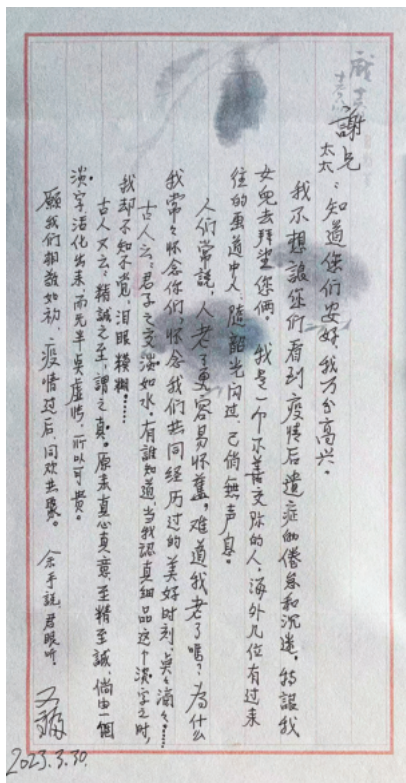 謝兄
太太：知道您们安好，我万分高兴。
我不想讓您们看到疫情后遺症的倦怠和沉迷，特誒我
女兒去拜望您俩。我是一个不善交际的人，海外几位有过来
往的画道中人，隨韶光闪过，已俏無声息。
人们常説，人老了更容易怀舊，难道我老了嗎？为什么
我常々怀念你们，怀念我们共同经历过的美好时刻，点々滴々……
古人云：君子之交淡如水。有誰知道，当我認真细品这个淡字之时，
我却不知不觉，泪眼糢糊……
古人又云：精誠之至，謂之真。原来真心真意，至精至誠，倘由一個
淡字活化出来，而无半点虚情，所以可贵。
願我们相敬如初，疫情过后，同欢共聚。
余手説，君眼听。
2023.3.30.